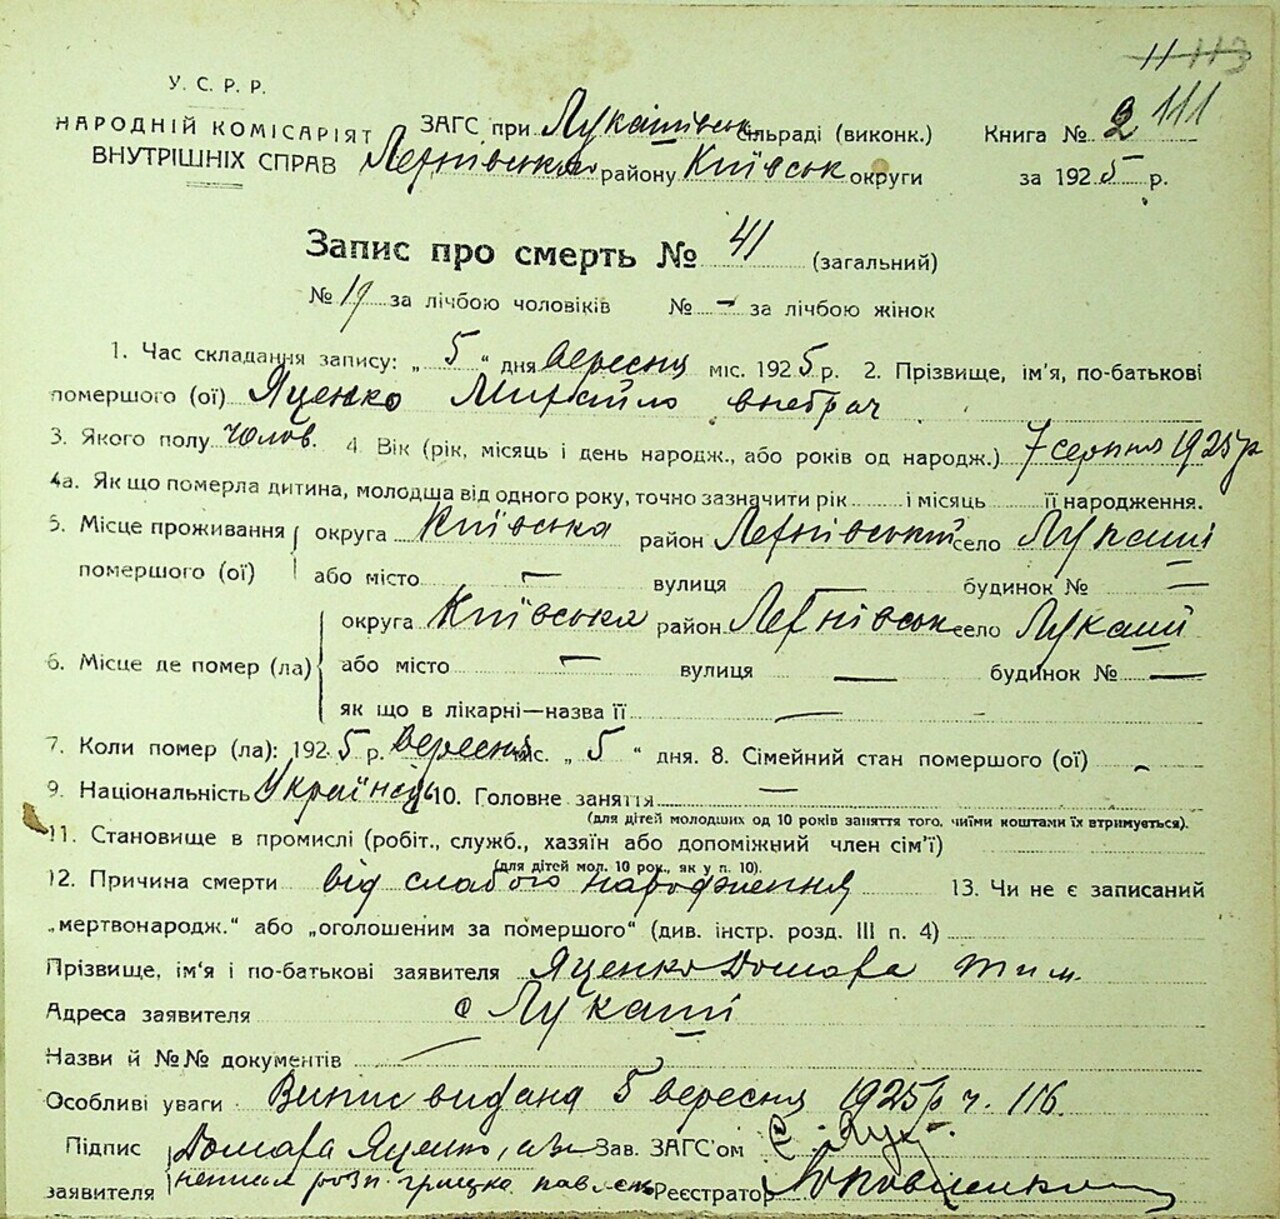 11 113
У. С. Р. Р.
НАРОДНІЙ КОМІСАРІЯТ
ВНУТРІШНІХ СПРАВ
ЗАГС при Лукашівськ сільраді (виконк.) Книга № 2 111
району Київськ округи за 1925 р.
Запис про смерть № 41 (загальний)
№ 19 за лічбою чоловіків № — за лічбою жінок
1. Час складання запису: „ 5 “ дня вересня міс. 1925 р. 2. Прізвище, ім'я, по-батькові
помершого (ої) Яценко Михайло внебрач
3. Якого полу чолов. 4. Вік (рік, місяць і день народж., або років од народж.) 7 серпня 1925 р
4а. Як що померла дитина, молодша від одного року, точно зазначити рік і місяць її народження.
5. Місце проживання помершого (ої) округа Київська район село Лукаші
або місто — вулиця — будинок № —
6. Місце де помер (ла) округа Київська район село Лукаші
або місто — вулиця — будинок № —
як що в лікарні—назва її —
7. Коли помер (ла): 1925 р. вересня міс. „ 5 “ дня. 8. Сімейний стан помершого (ої) -
9. Національність Українець 10. Головне заняття —
(для дітей молодших од 10 років заняття того, чиїми коштами їх втримується).
11. Становище в промислі (робіт., служб., хазяїн або допоміжний член сім'ї)
(для дітей мол. 10 рок., як у п. 10).
12. Причина смерти від слабого народження 13. Чи не є записаний
„мертвонародж.“ або „оголошеним за помершого“ (див. інстр. розд. III п. 4)
Прізвище, ім'я і по-батькові заявителя Яценко Домаха Тим.
Адреса заявителя с Лукаші
Назви й №№ документів —
Особливі уваги Випис видана 5 вересня 1925 р ч. 116.
Підпис Домаха Яценко, Зав. ЗАГС'ом
заявителя розп. Грицко Реєстратор